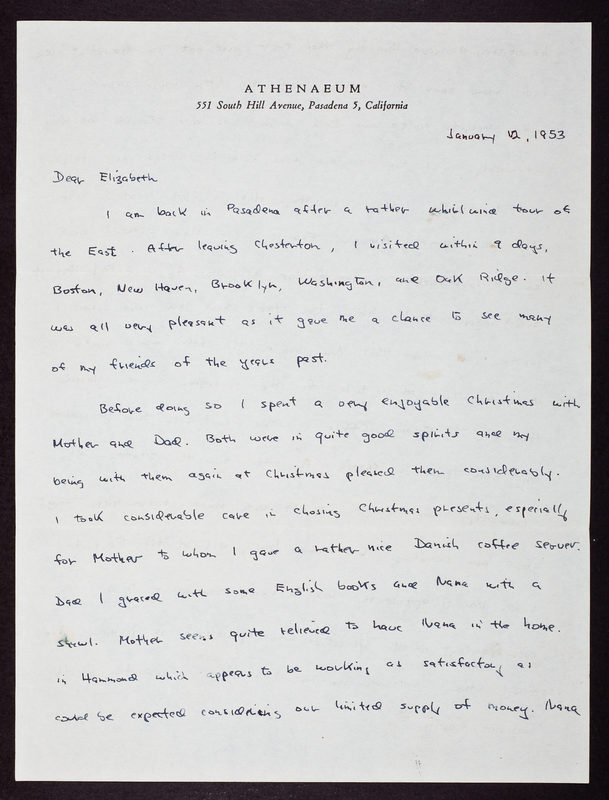 ATHENAEUM
551 South Hill Avenue, Pasadena 5, California
January 12, 1953
Dear Elizabeth
I am back in Pasadena after a rather whirlwind tour of
the East. After leaving Chesterton, I visited within 9 days,
Boston, New Haven, Brooklyn, Washington, and Oak Ridge. It
was all very pleasant as it gave me a chance to see many
of my friends of the years past.
Before doing so I spent a very enjoyable Christmas with
Mother and Dad. Both were in quite good spirits and my
being with them again at Christmas pleased them considerably.
I took considerable care in chosing Christmas presents, especially
for Mother to whom I gave a rather nice Danish coffee server.
Dad I graced with some English books and Nana with a
shawl. Mother seems quite relieved to have Nana in the home.
in Hammond which appears to be working as satisfactory as
could be expected considering our limited supply of money. Nana